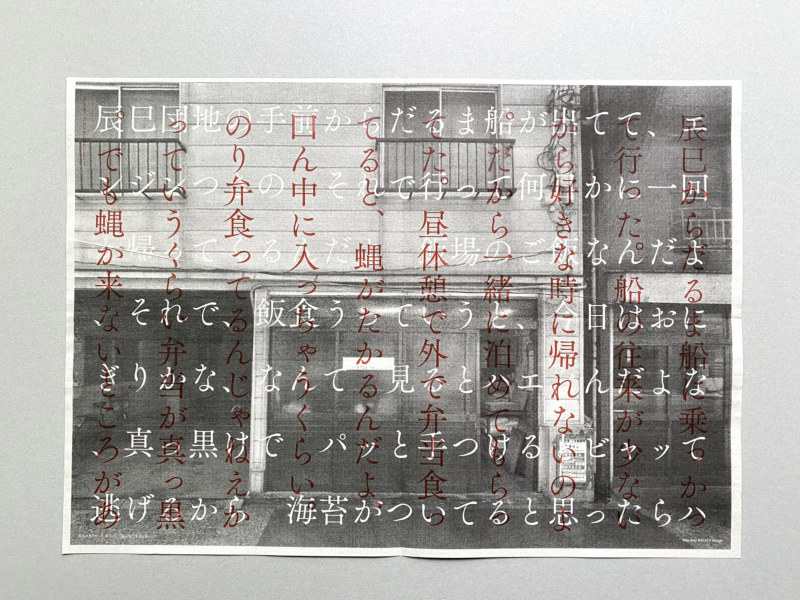 辰巳団地の手前からだるま船が出てて、エ
ンジンつくの。それで行って何時かに一回
帰ってくるんだ 場のご飯なんだよ
、それで、飯食うってゆうと、今日はおに
ぎりかな、なんて、見るとハエなんだよな
、真っ黒けで、パッと手つけるとビャッて
逃げるから、海苔がついてると思ったらハ
辰巳からだるま船に乗っかっ
て行った。船の往来が少ない
から好きな時に帰れないのよ
。だから一緒に泊めてもらっ
てた。昼休憩で外で弁当食っ
てると、蝿がたかるんだよ。
口ん中に入っちゃうくらい。
のり弁食ってるんじゃねえか
っていうくらい弁当が真っ黒
。でも蝿が来ないところがあ